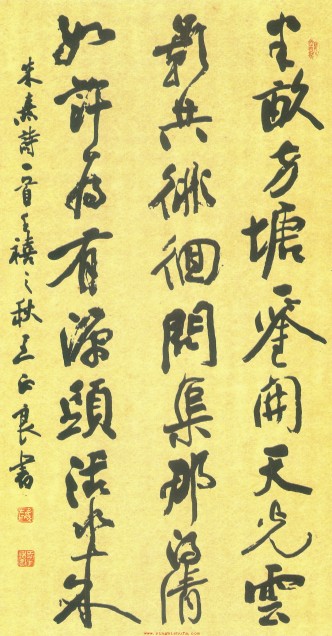 半畝方塘一鑒開天光雲
影共徘徊問渠那得清
如許為有源頭活水來
朱熹詩一首千禧之秋王正良書